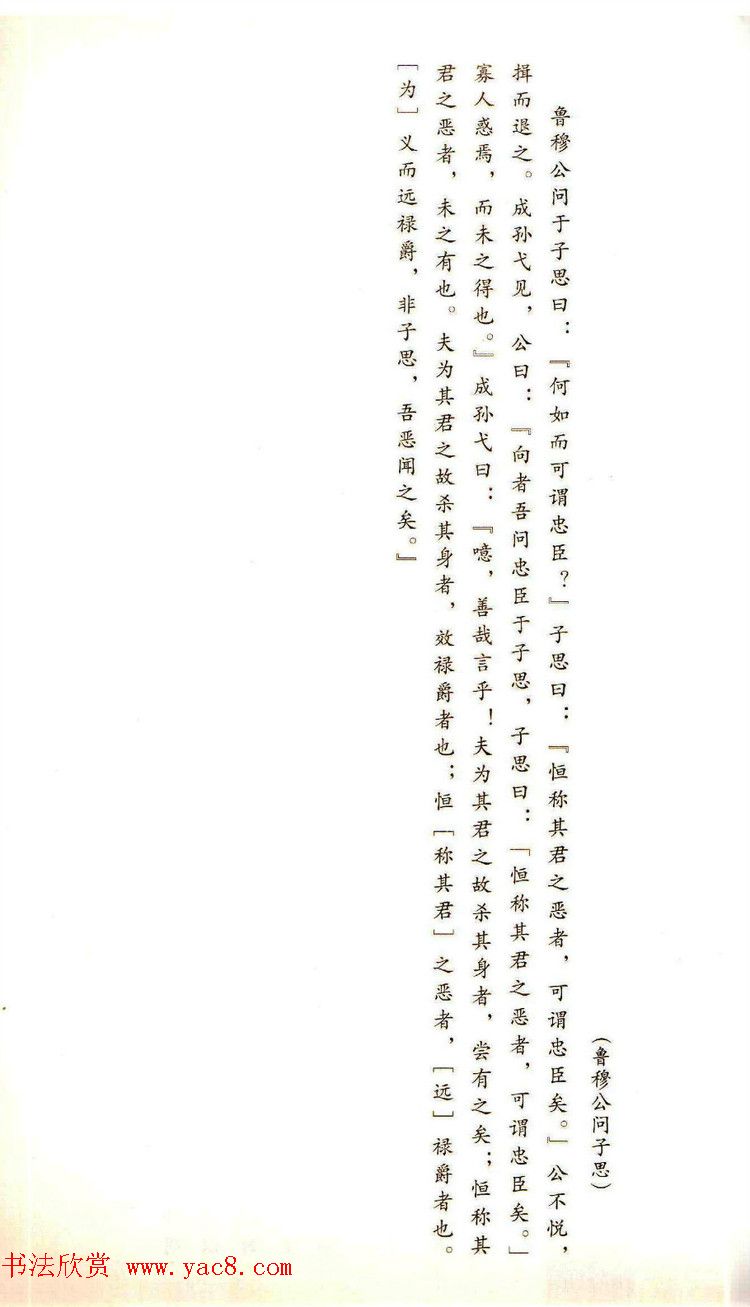 (鲁穆公问子思)
鲁穆公问于子思曰：『何如而可谓忠臣？』子思曰：『恒称其君之恶者，可谓忠臣矣。』公不悦，
揖而退之。成孙弋见，公曰：『向者吾问忠臣于子思，子思曰：「恒称其君之恶者，可谓忠臣矣。」
寡人惑焉，而未之得也。』成孙弋曰：『噫，善哉言乎！夫为其君之故杀其身者，尝有之矣；恒称其
君之恶者，未之有也。夫为其君之故杀其身者，效禄爵者也；恒［称其君］之恶者，［远］禄爵者也。
［为］义而远禄爵，非子思，吾恶闻之矣。』
书法欣赏 www.yac8.com